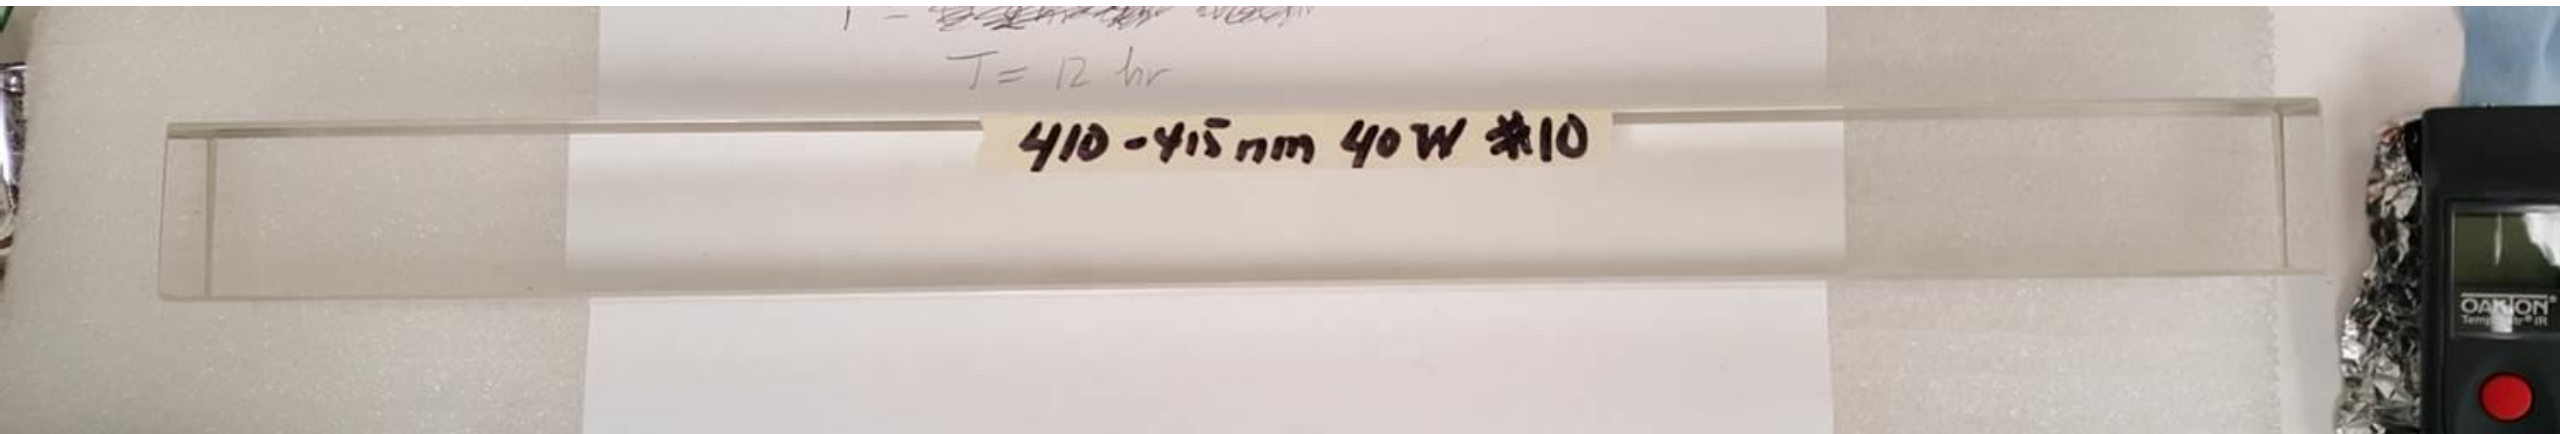 T = 12 hr
410-415 nm 40 W #10
OAKTON®